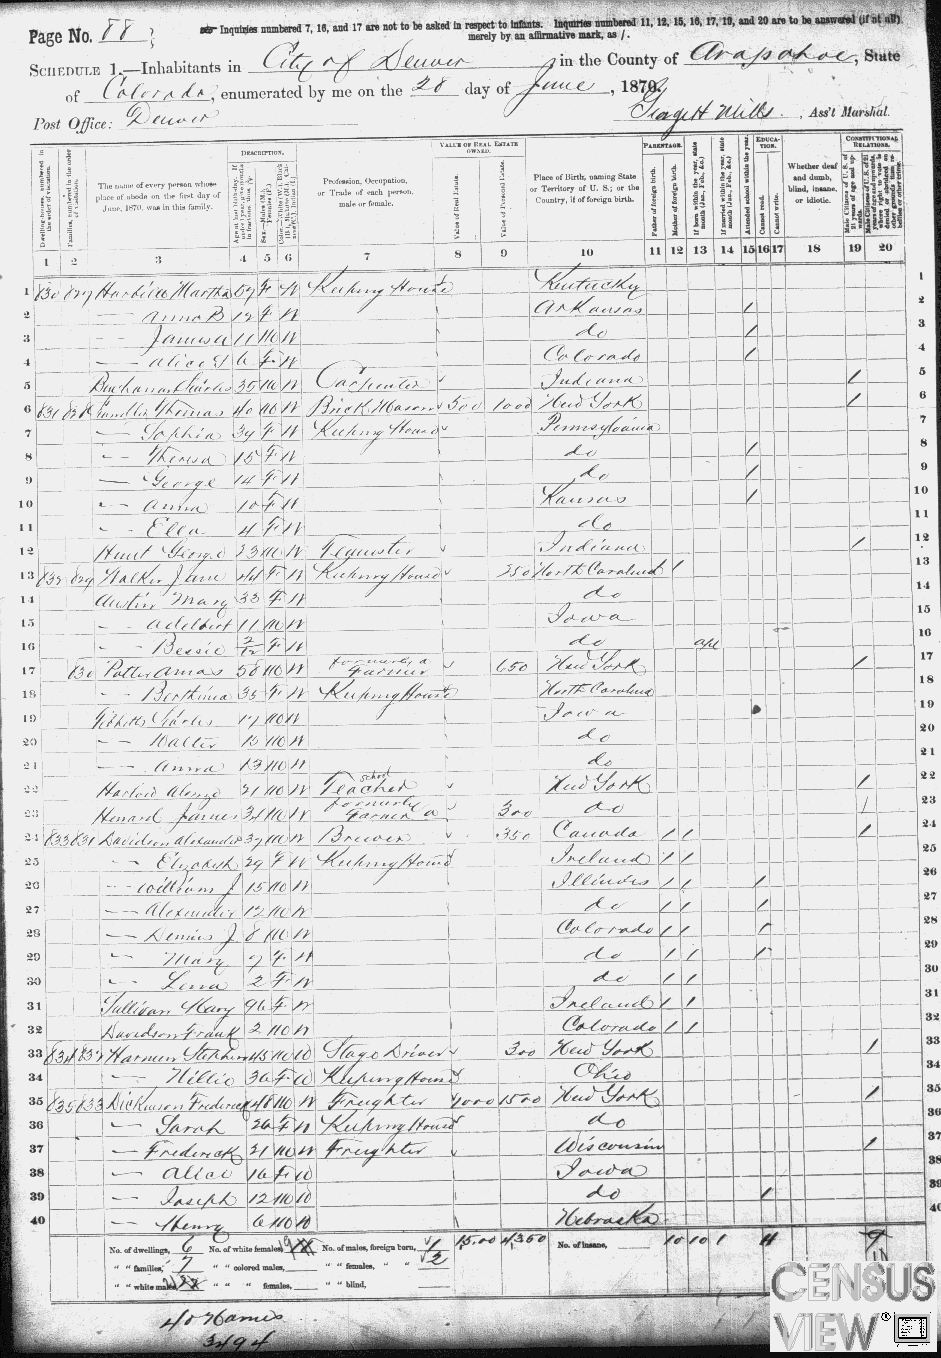 Page No. 88
Inquiries numbered 7, 16, and 17 are not to be asked in respect to infants. Inquiries numbered 11, 12, 15, 16, 17, 19, and 20 are to be answered (if at all)
merely by an affirmative mark, as /.
SCHEDULE 1.—Inhabitants in City of Denver, in the County of Arapahoe, State
of Colorado, enumerated by me on the 28 day of June, 1870.
Post Office: Denver
George H Mills, Ass't Marshal.
DESCRIPTION.
VALUE OF REAL ESTATE OWNED.
PARENTAGE.
EDUCATION.
CONSTITUTIONAL RELATIONS.
Dwelling-houses, numbered in the order of visitation.
Families, numbered in the order of visitation.
The name of every person whose place of abode on the first day of June, 1870, was in this family.
Profession, Occupation, or Trade of each person, male or female.
Value of Real Estate.
Value of Personal Estate.
Place of Birth, naming State or Territory of U. S.; or the Country, if of foreign birth.
Father of foreign birth.
Mother of foreign birth.
Attended school within the year.
Cannot read.
Cannot write.
Whether deaf and dumb, blind, insane, or idiotic.
1 2 3 4 5 6 7 8 9 10 11 12 13 14 15 16 17 18 19 20
1 830 827 Martha 59 F W Keeping House Kentucky 1
2 — Anna B 12 F W Arkansas / 2
3 — James A 11 M W do / 3
4 — Alice 6 F W Colorado / 4
5 Buchanan Charles 35 M W Carpenter Indiana / 5
6 831 828 Thomas 40 M W Brick Mason 500 1000 New York / 6
7 — Sophia 39 F W Keeping House Pennsylvania 7
8 — Theresa 15 F W do / 8
9 — George 14 F W do / 9
10 — Anna 10 F W Kansas / 10
11 — Ella 4 F W do 11
12 Hunt George 23 M W Teamster Indiana / 12
13 832 829 Walker Jane 44 F W Keeping House 250 North Carolina / 13
14 Austin Mary 33 F W do 14
15 — Adelbert 11 M W Iowa 15
16 — Bessie 2/12 F W do apl 16
17 830 Potter Amas 58 M W formerly a Farmer 650 New York / 17
18 — Berthina 35 F W Keeping House North Carolina 18
19 Charles 17 M W Iowa 19
20 — Walter 15 M W do 20
21 — Anna 13 M W do 21
22 Alonzo 21 M W school Teacher New York / 22
23 James 34 M W formerly a Farmer 300 do / 23
24 833 831 Davidson Alexander 37 M W Brewer 350 Canada / / / 24
25 — Elizabeth 29 F W Keeping House Ireland / / 25
26 — William J 15 M W Illinois / / / 26
27 — Alexander 12 M W do / / / 27
28 — Dennis J 8 M W Colorado / / / 28
29 — Mary 7 F W do / / / 29
30 — Lena 2 F W do / / 30
31 Sullivan Mary 96 F W Ireland / / 31
32 Davidson Frank 2 M W Colorado / / 32
33 834 832 Harmen Stephen 45 M W Stage Driver 300 New York / 33
34 — Nillie 36 F W Keeping House Ohio 34
35 835 833 Dickinson Frederick 48 M W Freighter 1000 1500 New York / 35
36 — Sarah 26 F W Keeping House do 36
37 — Frederick 21 M W Freighter Wisconsin / 37
38 — Alice 16 F W Iowa 38
39 — Joseph 12 M W do / 39
40 — Henry 6 M W Nebraska 40
No. of dwellings, 6 No. of white females, 19 No. of males, foreign born, 1 1500 4350 No. of insane, 10 10 1 4 9
" " families, 7 " " colored males, " " females, " " 2 11
" " white males, " " " females, " " blind,
40 Names
3494
CENSUS
VIEW®